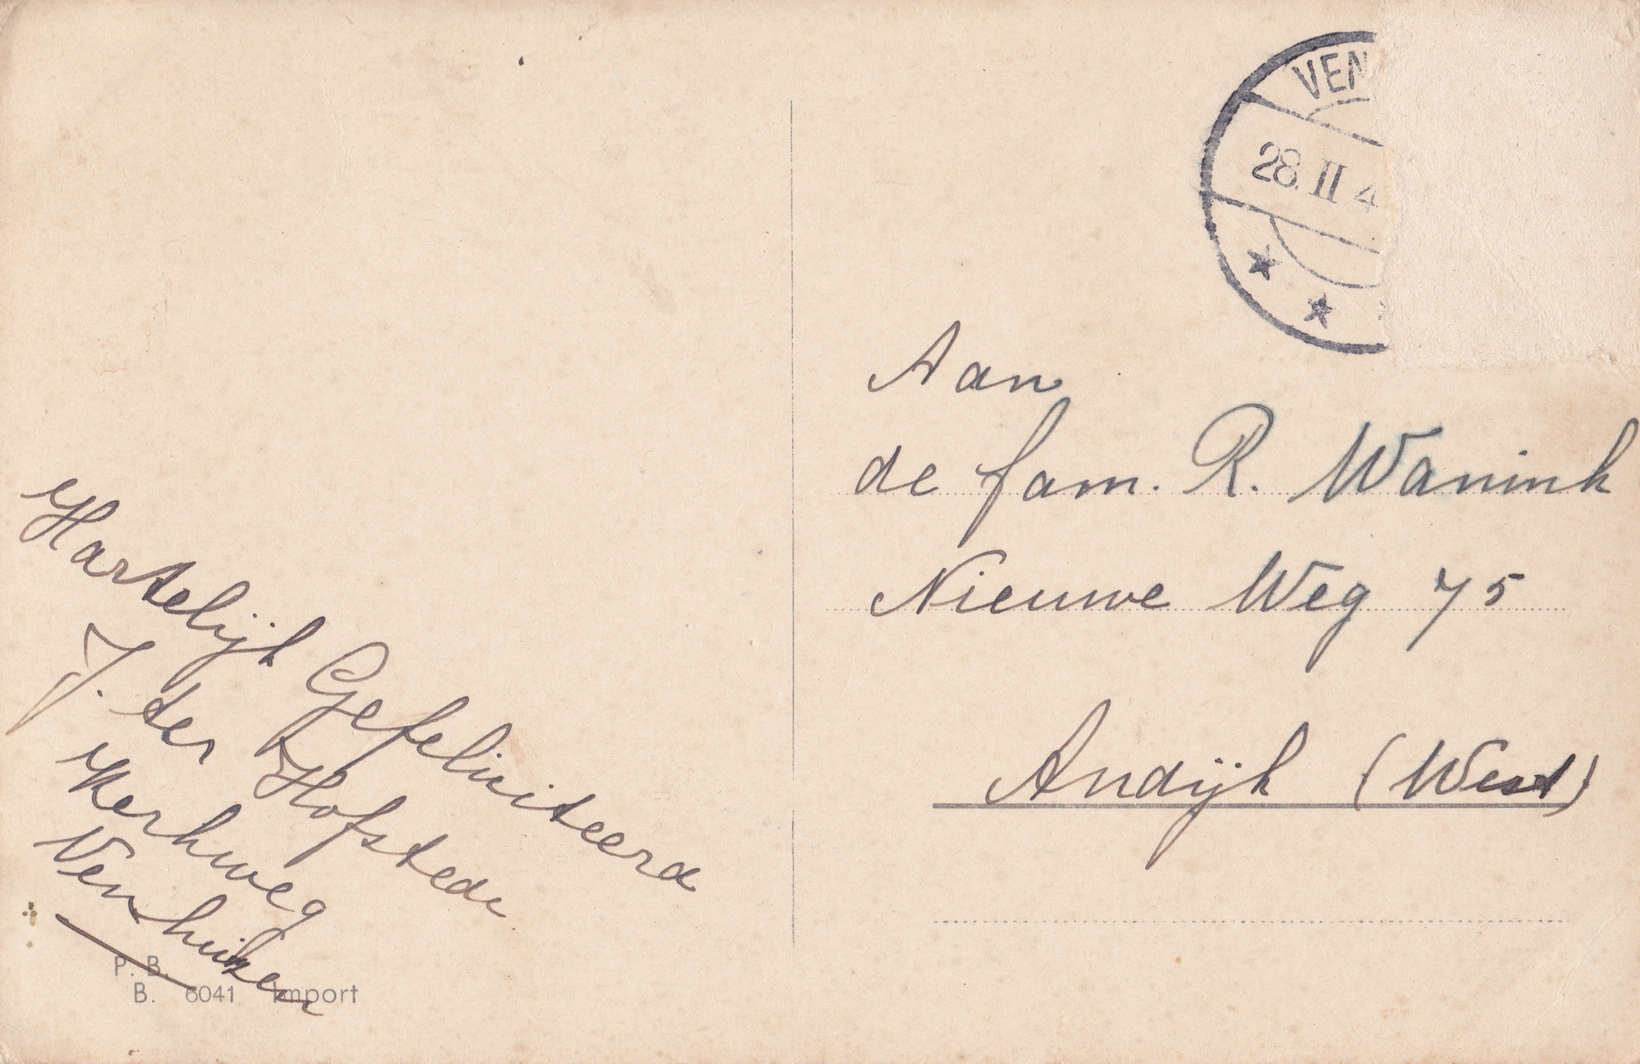 VEN
28. II 4
Aan
de fam. R. Wanink
Nieuwe Weg 75
Andijk (West)
Hartelijk Gefeliciteerd
J. ter Hofstede
Kerkweg
Venhuizen
P. B.
B. 6041 Import